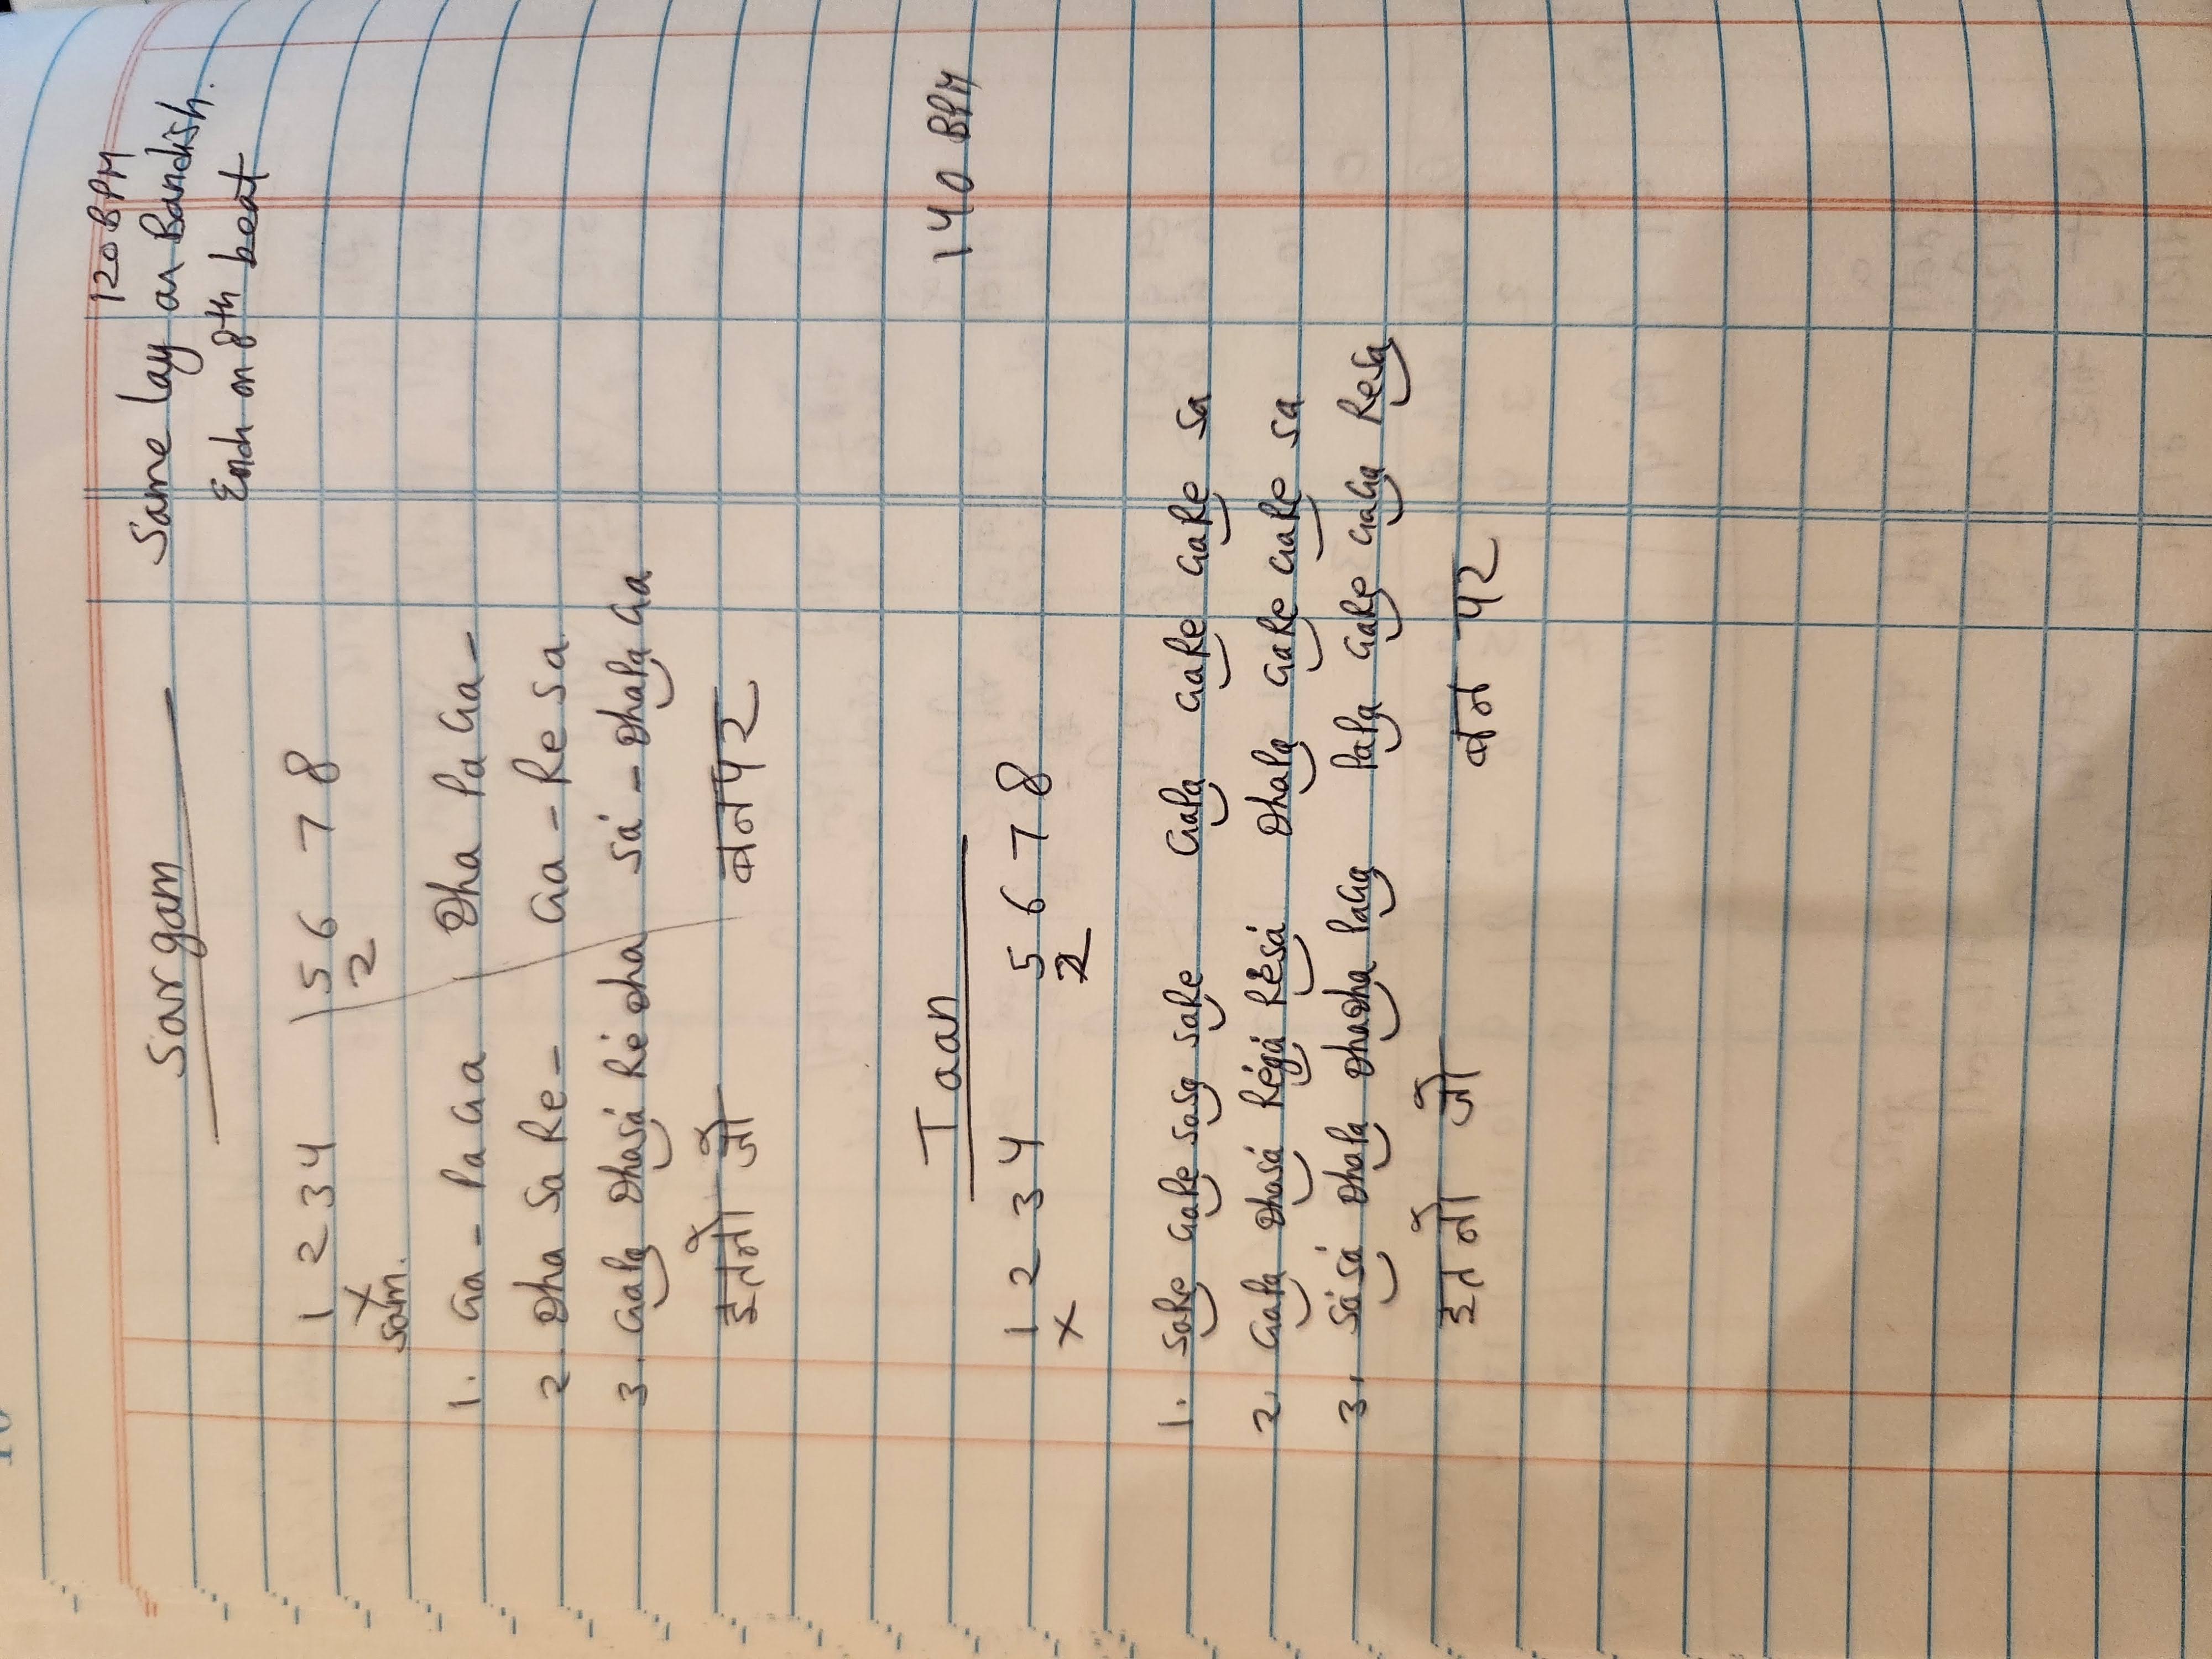 10
120 BPM
Sargam Same lay as Bandish.
End on 8th beat
1 2 3 4 | 5 6 7 8
x 2
Sam.
1. Ga - Pa Ga Dha Pa Ga -
2. Dha Sa Re - Ga - Re Sa
3. GaPa DhaSȧ Rė Dha Sȧ - DhaPa Ga
इतनो जो बनपर
Taan 140 BPM
1 2 3 4 5 6 7 8
x 2
1. SaRe GaRe SaSa SaRe GaPa GaRe GaRe Sa
2. GaPa DhaSȧ RėGȧ RėSȧ DhaPa GaRe GaRe Sa
3. SȧSȧ DhaPa DhaDha PaGa PaPa GaRe GaGa ReSa
इतनो जो बन पर